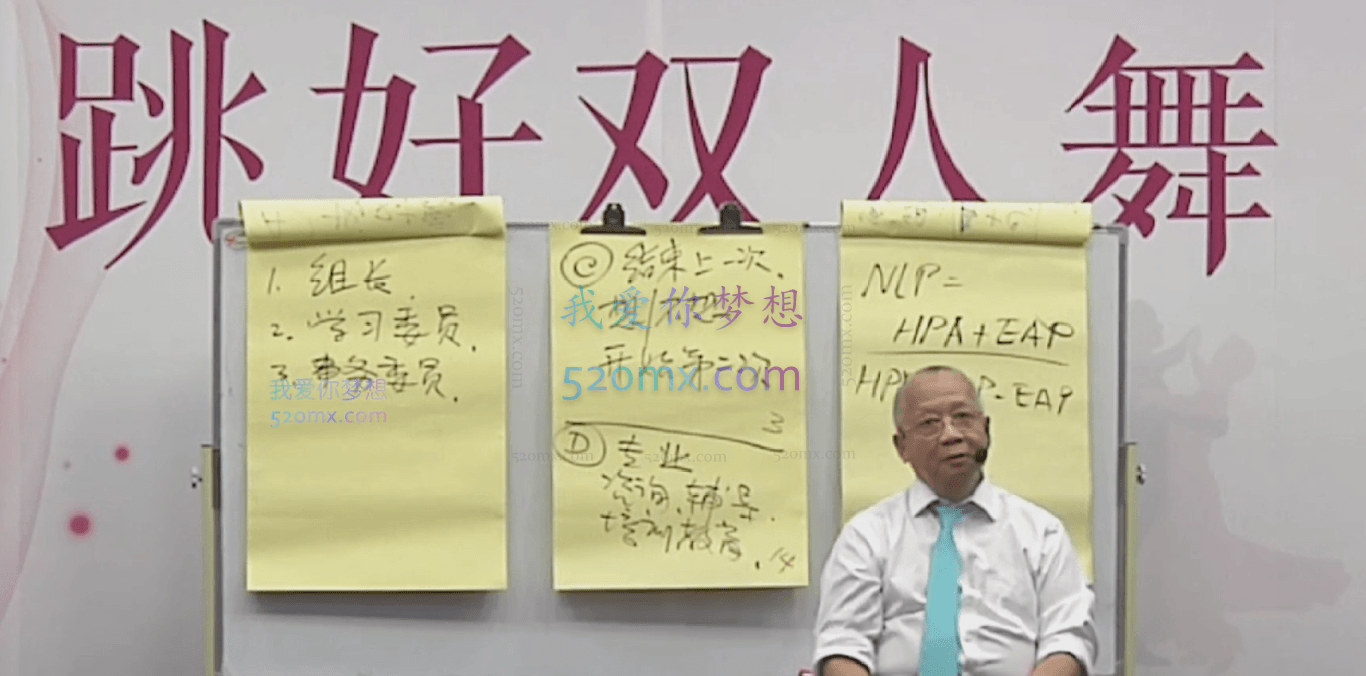 跳好双人舞
1. 组长.
2. 学习委员.
3. 事务委员.
C 结束上一次.
开始第二次
3
D 专业
咨询.辅导.
培训教育.
14
NLP=
HPA+EAP
- EAP
我爱你梦想
520mx.com
我爱你梦想
520mx.com
520mx.com
520mx.com
520mx.com
520mx.com
520mx.com